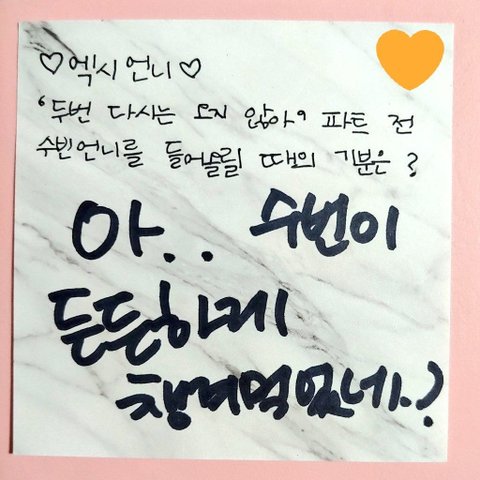 ♡엑시 언니♡
'두번 다시는 오지 않아' 파트 전
수빈언니를 들어올릴 때의 기분은?
아.. 수빈이
든든하게
챙겨먹었네..?